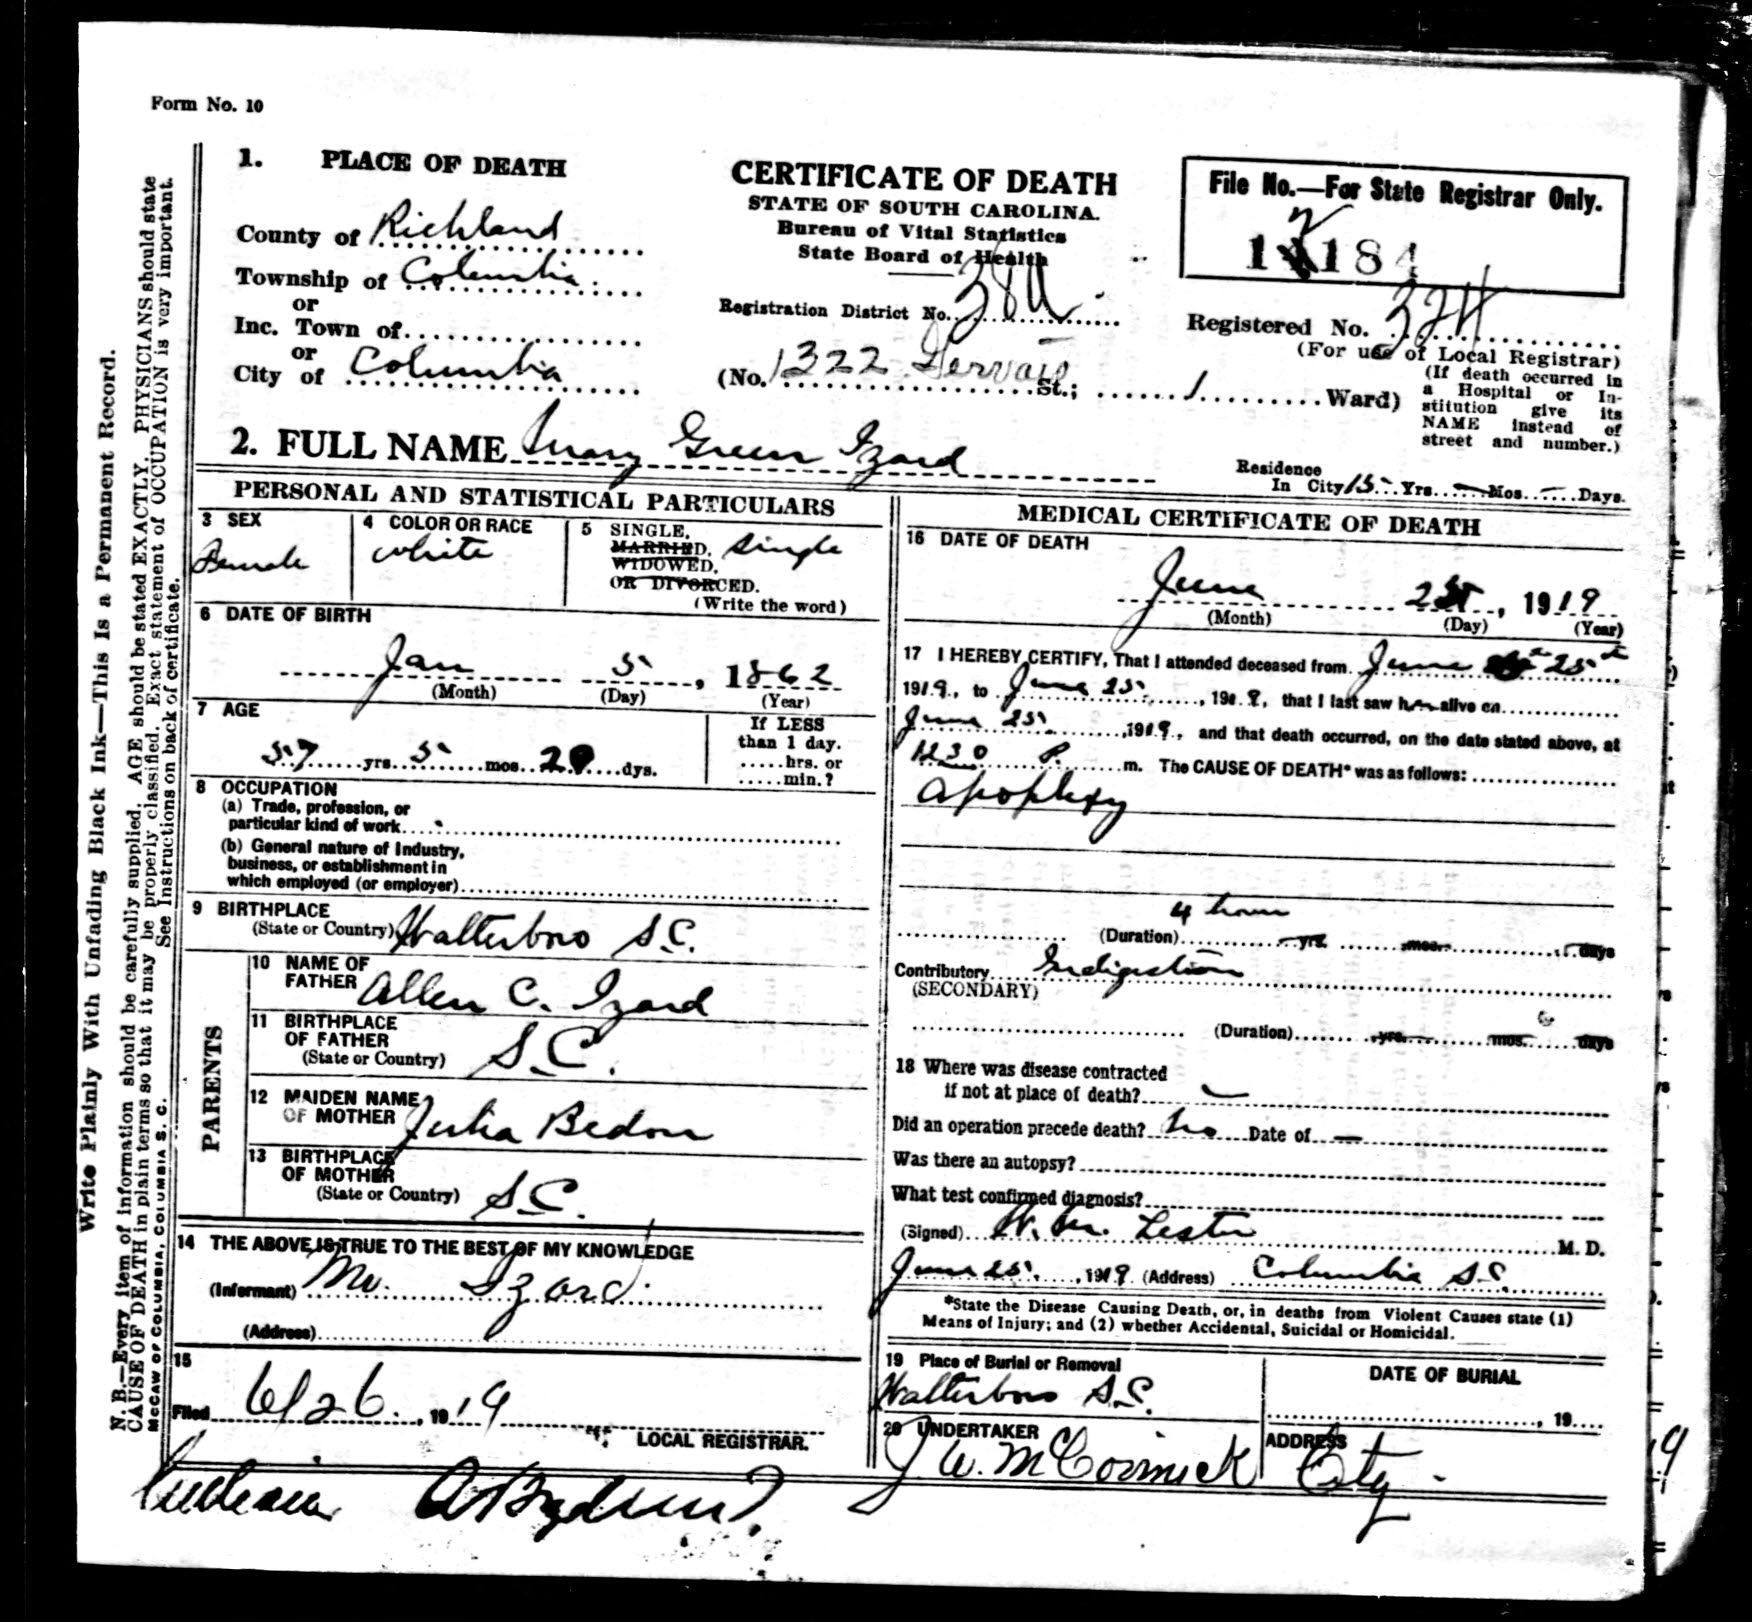 Form No. 10
1. PLACE OF DEATH
County of Richland
Township of Columbia
or
Inc. Town of
or
City of Columbia
CERTIFICATE OF DEATH
STATE OF SOUTH CAROLINA.
Bureau of Vital Statistics
State Board of Health
Registration District No. 38A
(No. 1322 Gervais St.; 1 Ward)
File No.—For State Registrar Only.
184
Registered No. 324
(For use of Local Registrar)
(If death occurred in
a Hospital or In-
stitution give its
NAME instead of
street and number.)
2. FULL NAME Mary Green Izard
Residence
In City 15 Yrs. — Mos. — Days.
PERSONAL AND STATISTICAL PARTICULARS
3 SEX
Female
4 COLOR OR RACE
White
5 SINGLE,
MARRIED, Single
WIDOWED,
OR DIVORCED.
(Write the word)
6 DATE OF BIRTH
Jan 5, 1862
(Month) (Day) (Year)
7 AGE
57 yrs. 5 mos. 20 dys.
If LESS
than 1 day.
hrs. or
min.?
8 OCCUPATION
(a) Trade, profession, or
particular kind of work
(b) General nature of Industry,
business, or establishment in
which employed (or employer)
9 BIRTHPLACE
(State or Country) Walterboro S.C.
PARENTS
10 NAME OF
FATHER Allen C. Izard
11 BIRTHPLACE
OF FATHER
(State or Country) S.C.
12 MAIDEN NAME
OF MOTHER Julia Bedon
13 BIRTHPLACE
OF MOTHER
(State or Country) S.C.
14 THE ABOVE IS TRUE TO THE BEST OF MY KNOWLEDGE
(Informant) Mr. Izard
(Address)
15
Filed 6/26, 1919
LOCAL REGISTRAR.
MEDICAL CERTIFICATE OF DEATH
16 DATE OF DEATH
June 25, 1919
(Month) (Day) (Year)
17 I HEREBY CERTIFY, That I attended deceased from June 25th
1919, to June 25, 1919, that I last saw her alive on
June 25, 1919, and that death occurred, on the date stated above, at
P. m. The CAUSE OF DEATH* was as follows:
Apoplexy
4 hours
(Duration) yrs. mos. days
Contributory Indigestion
(SECONDARY)
(Duration) yrs. mos. days
18 Where was disease contracted
if not at place of death? —
Did an operation precede death? No Date of —
Was there an autopsy?
What test confirmed diagnosis?
(Signed) W. M. Lester M. D.
June 25, 1919 (Address) Columbia S.C.
*State the Disease Causing Death, or, in deaths from Violent Causes state (1)
Means of Injury; and (2) whether Accidental, Suicidal or Homicidal.
19 Place of Burial or Removal
Walterboro S.C.
DATE OF BURIAL
, 19
20 UNDERTAKER
J. W. McCormick
ADDRESS
City.
Write Plainly With Unfading Black Ink—This Is a Permanent Record.
N. B.—Every item of information should be carefully supplied. AGE should be stated EXACTLY. PHYSICIANS should state
CAUSE OF DEATH in plain terms so that it may be properly classified. Exact statement of OCCUPATION is very important.
See Instructions on back of certificate.
McCAW OF COLUMBIA, COLUMBIA S. C.